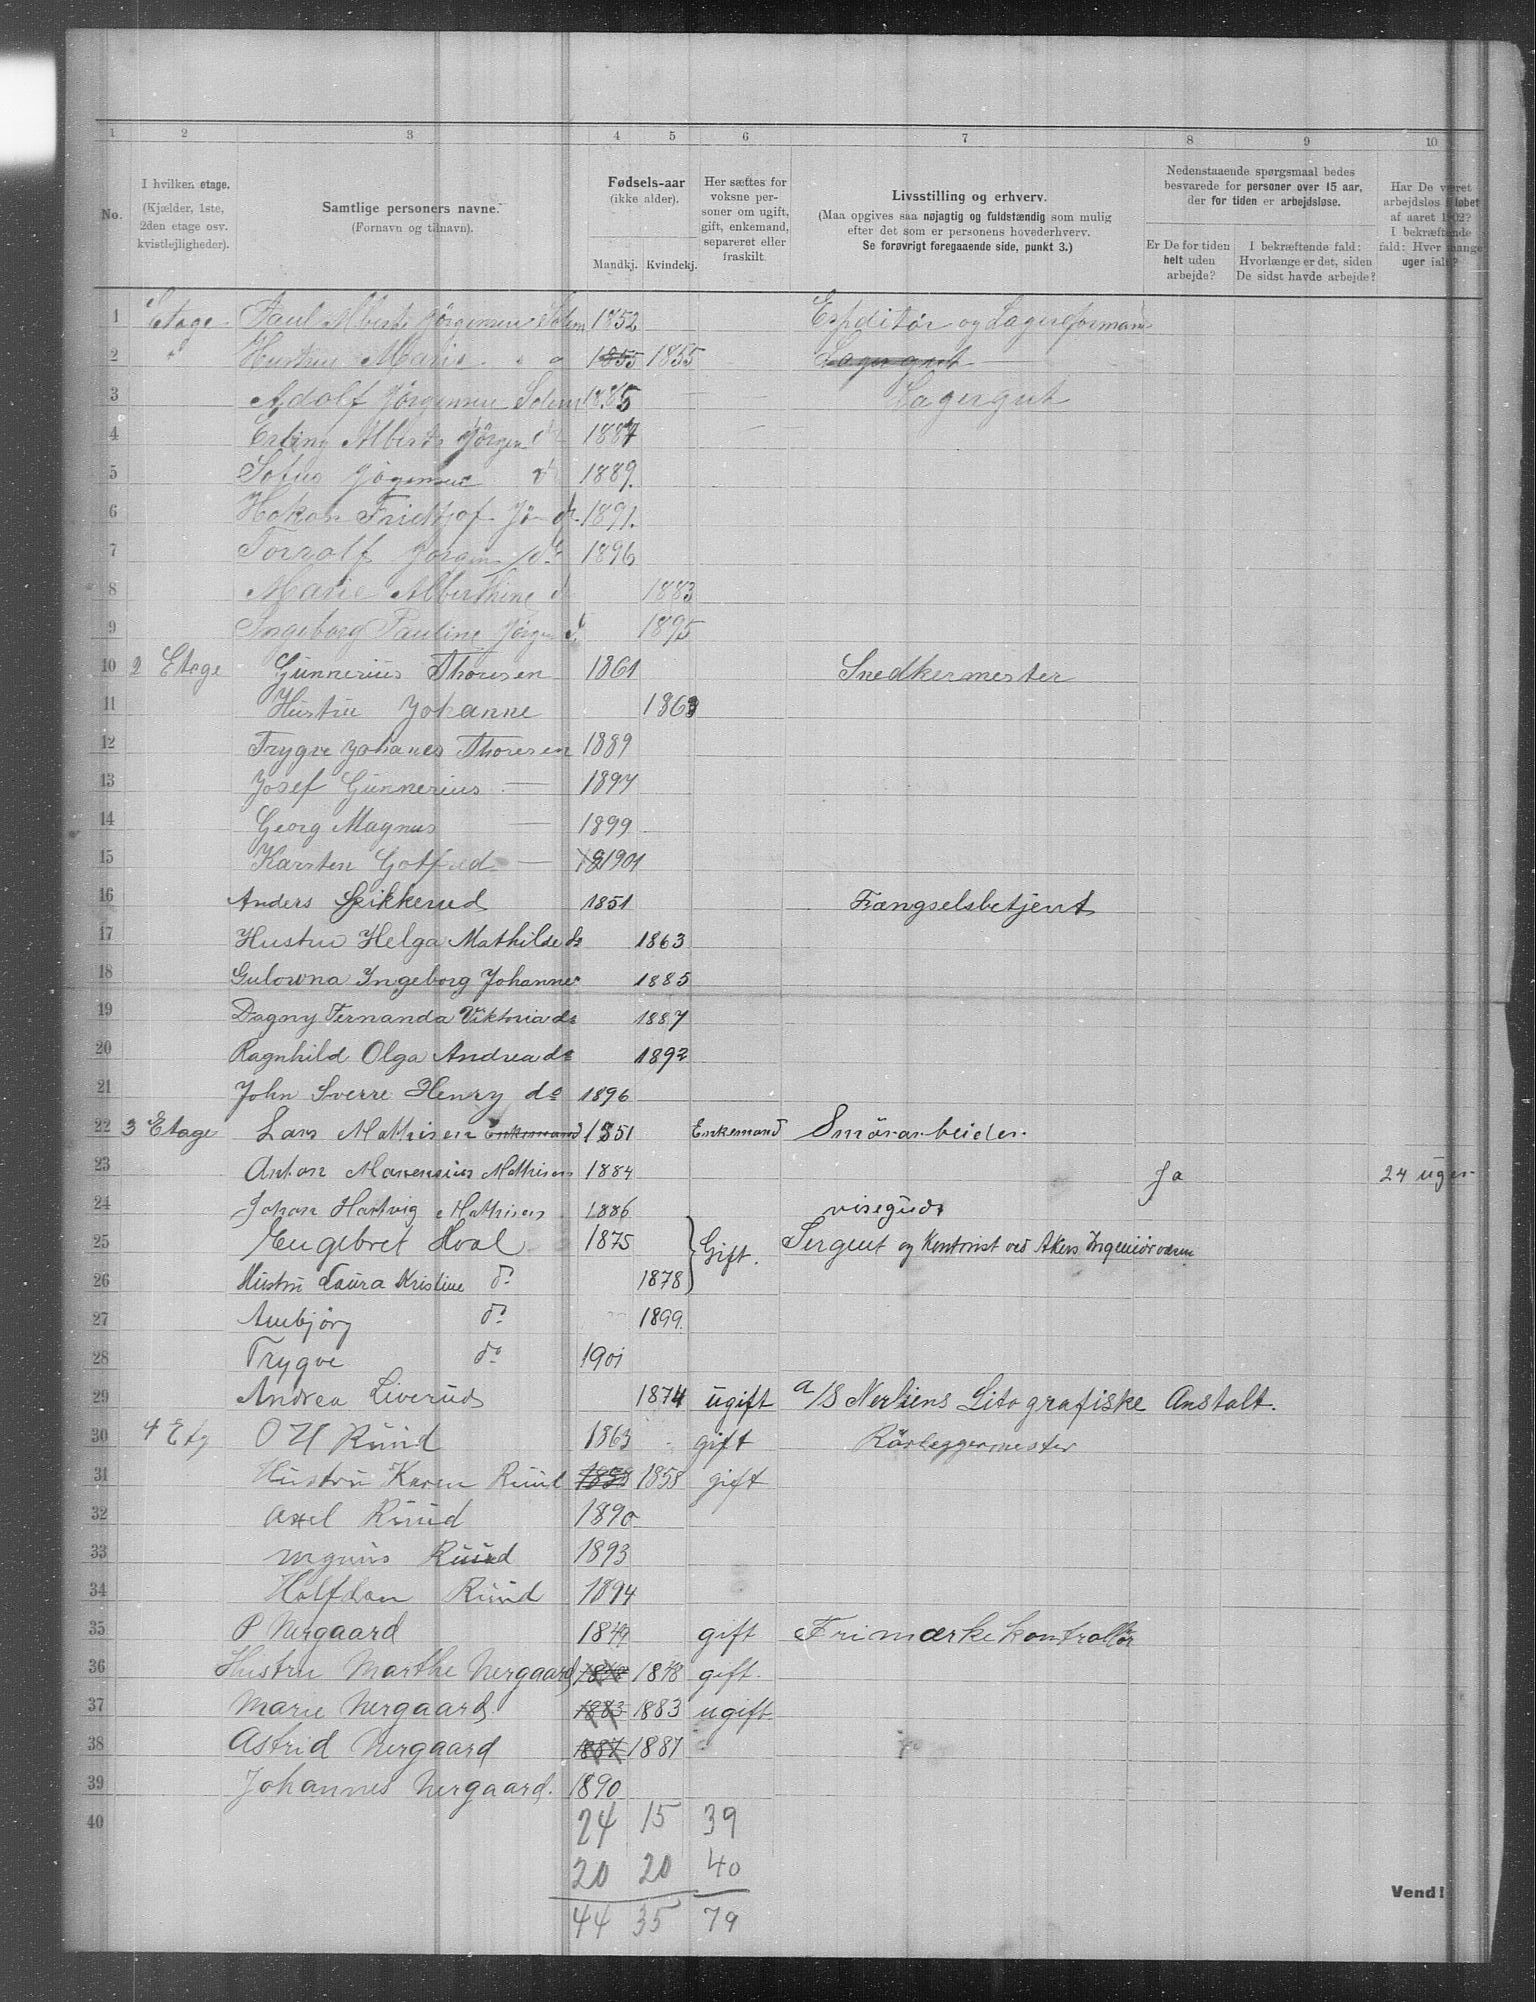 1 2 3 4 5 6 7 8 9 10
No.
I hvilken etage.
(Kjælder, 1ste,
2den etage osv.
kvistlejligheder).
Samtlige personers navne.
(Fornavn og tilnavn).
Fødsels-aar
(ikke alder).
Mandkj. Kvindekj.
Her sættes for
voksne per-
soner om ugift,
gift, enkemand,
separeret eller
fraskilt.
Livsstilling og erhverv.
(Maa opgives saa nøjagtig og fuldstændig som mulig
efter det som er personens hovederhverv.
Se forøvrigt foregaaende side, punkt 3.)
Nedenstaaende spørgsmaal bedes
besvarede for personer over 15 aar,
der for tiden er arbejdsløse.
Er De for tiden
helt uden
arbejde?
I bekræftende fald:
Hvorlænge er det, siden
De sidst havde arbejde?
Har De været
arbejdsløs i løbet
af aaret 1902?
I bekræftende
fald: Hver mange
uger ialt?
1 Etage Paul Alberts Jørgensen Solem 1852 Expeditør og Lagerformann
2 " Hustru Marie " " 1855 1855 Lagergut
3 Adolf Jørgensen Solem 1885 Lagergut
4 Erling Alberts Jørgen do 1887
5 Sofus Jørgensen do 1889.
6 Hakon Fridtjof Jør do 1891.
7 Torralf Jørgen do 1896
8 Marie Alberthine do 1883
9 Ingeborg Pauline Jørgen do 1895
10 2 Etage Gunnerius Thoresen 1861 Snedkermester
11 Hustru Johanne 1863
12 Trygve Johanes Thoresen 1889
13 Josef Gunnerius — 1894
14 Georg Magnus — 1899
15 Karsten Gotfred — 1901
16 Anders Spikkerud 1851 Fængselsbetjent
17 Hustru Helga Mathilde do 1863
18 Gulowna Ingeborg Johanne 1885
19 Dagny Fernanda Viktoria do 1887
20 Ragnhild Olga Andrea do 1892
21 John Sverre Henry do 1896
22 3 Etage Lars Mathisen Enkemand 1851 Enkemand Smörarbeider
23 Anton Marensius Mathisen 1884 Ja 24 uger
24 Johan Hartvig Mathisen 1886 visegudt
25 Engebret Hval 1875 Gift. Sergent og Kontorist ved Akers Ingeniörvæsen
26 Hustru Laura Kristine do 1878
27 Ambjörg do 1899.
28 Trygve do 1901
29 Andrea Liverud 1874 ugift a/S Nerliens Litografiske Anstalt.
30 4 Etg O H Ruud 1863 gift Rörleggermester
31 Hustru Karen Ruud 1858 1858 gift
32 Axel Ruud 1890
33 Magnus Ruud 1893
34 Halfdan Ruud 1894
35 P Nergaard 1849 gift Frimærkekontrollör
36 Hustru Marthe Nergaard 1848 1848 gift.
37 Marie Nergaard 1883 1883 ugift
38 Astrid Nergaard 1887 1887
39 Johannes Nergaard. 1890
40 24 15 39
20 20 40
44 35 79
Vend!